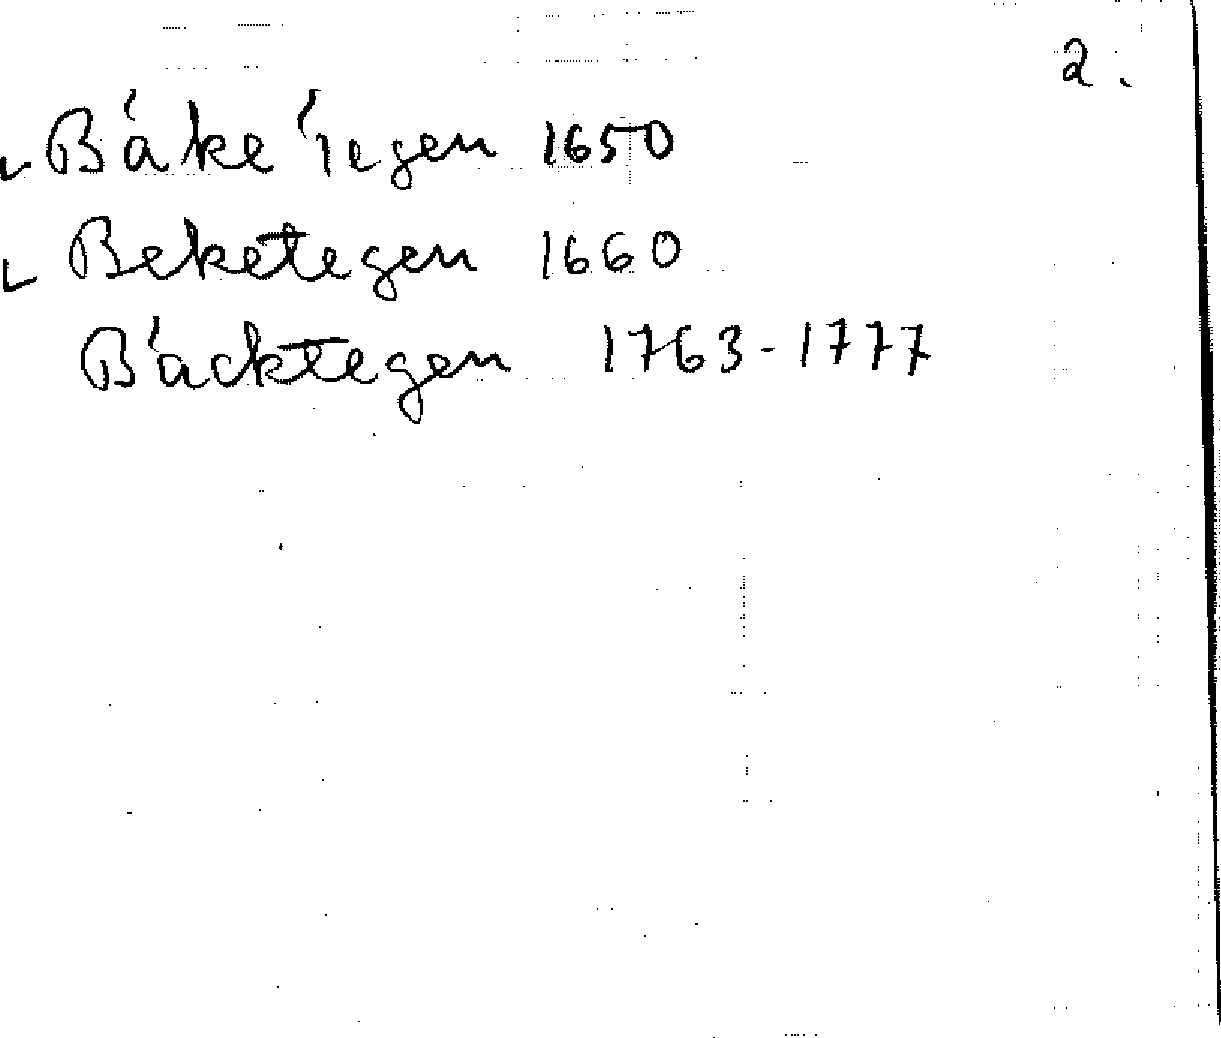 2.
Báke'tegen 1650
Beketegen 1660
Bácktegen 1763-1777